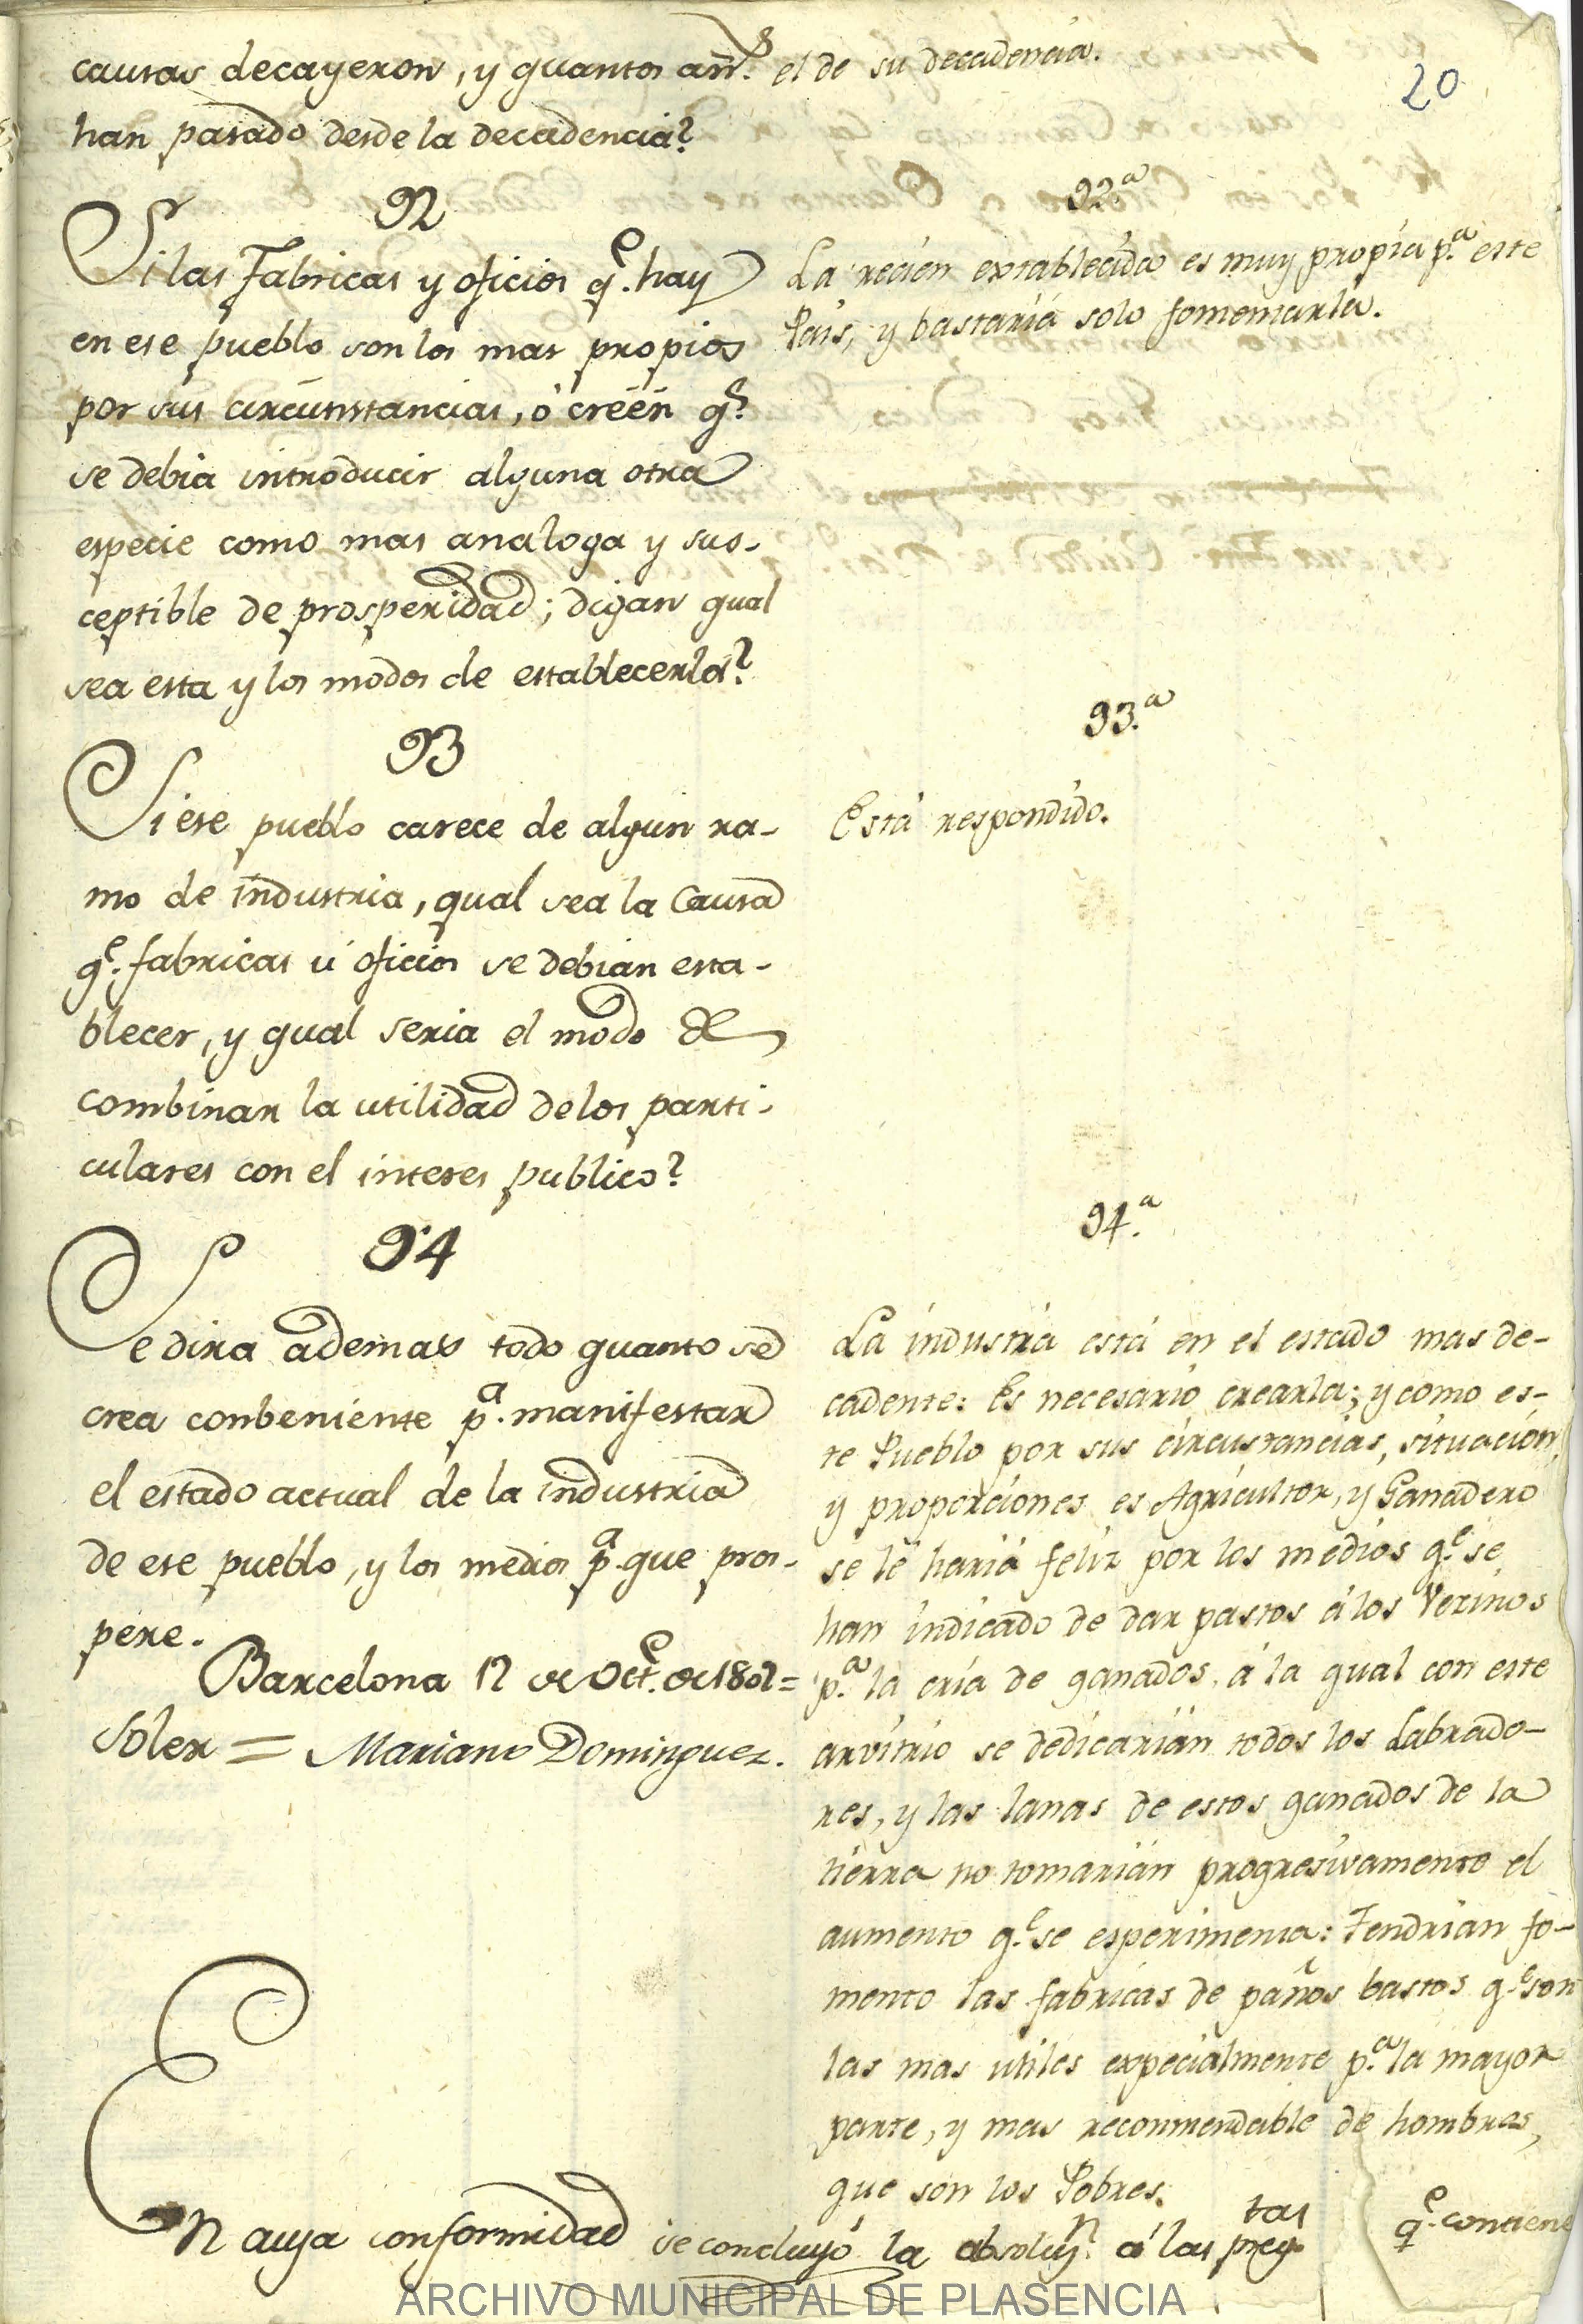 20
causas decayeron, y quantos añ.s
han pasado desde la decadencia?
92
Si las Fabricas y oficios q.e hay
en ese pueblo son los mas propios
por sus circunstancias, ó créén q.e
se debia introducir alguna otra
especie como mas analoga y sus-
ceptible de prosperidad; digan qual
sea esta y los modos de establecerla?
93
Si ese pueblo carece de algun ra-
mo de industria, qual sea la Causa
q.e fabricas ú oficios se debian esta-
blecer, y qual seria el modo de
combinar la utilidad de los parti-
culares con el interes publico?
94
Se dira ademas todo quanto se
crea conbeniente p.a manifestar
el estado actual de la industria
de ese pueblo, y los medios p.a que pros-
pere.
Barcelona 12 de Oct.e de 1802=
Soler = Mariano Dominguez.
el de su decadencia.
92.a
La recien extablecida es muy propia p.a este
Pais, y bastaria solo fomentarla.
93.a
Está respondido.
94.a
La industria está en el estado mas de-
cadente: Es necesario crearla; y como es-
te Pueblo por sus circustancias, situacion,
y proporciones es Agricultor, y Ganadero
se le haria feliz por los medios q.e se
han indicado de dar pastos á los Vecinos
p.a la cria de ganados, á la qual con este
arvitrio se dedicarian todos los Labrado-
res, y las lanas de estos ganados de la
tierra no tomarian progresivamente el
aumento q.e se esperimenta: Tendrian fo-
mento las fabricas de paños bastos q.e son
las mas utiles expecialmente p.a la mayor
parte, y mas recommendable de hombres,
que son los Pobres.
En cuya conformidad se concluyó la absoluz.n á las preg.tas q.e contiene
ARCHIVO MUNICIPAL DE PLASENCIA